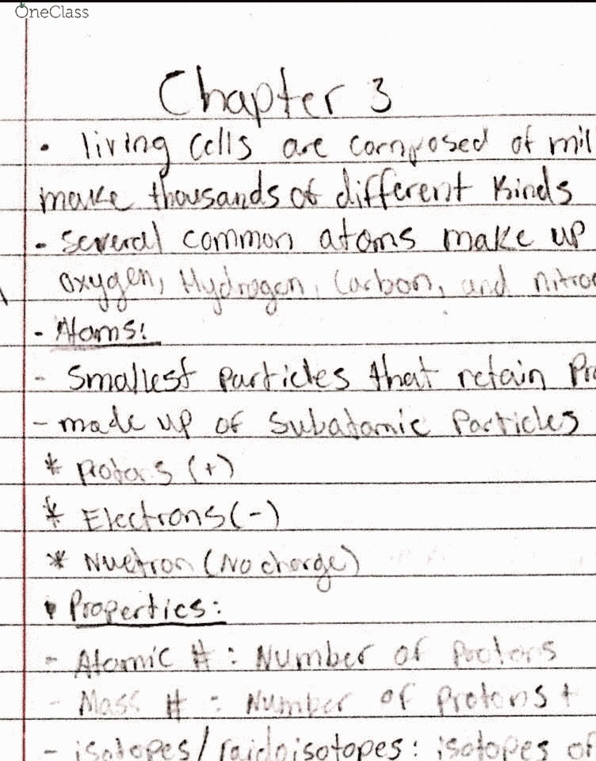 OneClass
Chapter 3
• living cells are composed of mil
make thousands of different kinds
- several common atoms make up
oxygen, Hydrogen, Carbon, and nitro
- Atoms:
- Smallest particles that retain Pro
- made up of Subatomic Particles
* protons (+)
* Electrons (-)
* Nuetron (No charge)
• Properties:
- Atomic # : Number of protons
- Mass # : Number of Protons +
- isotopes/raidoisotopes: isotopes of